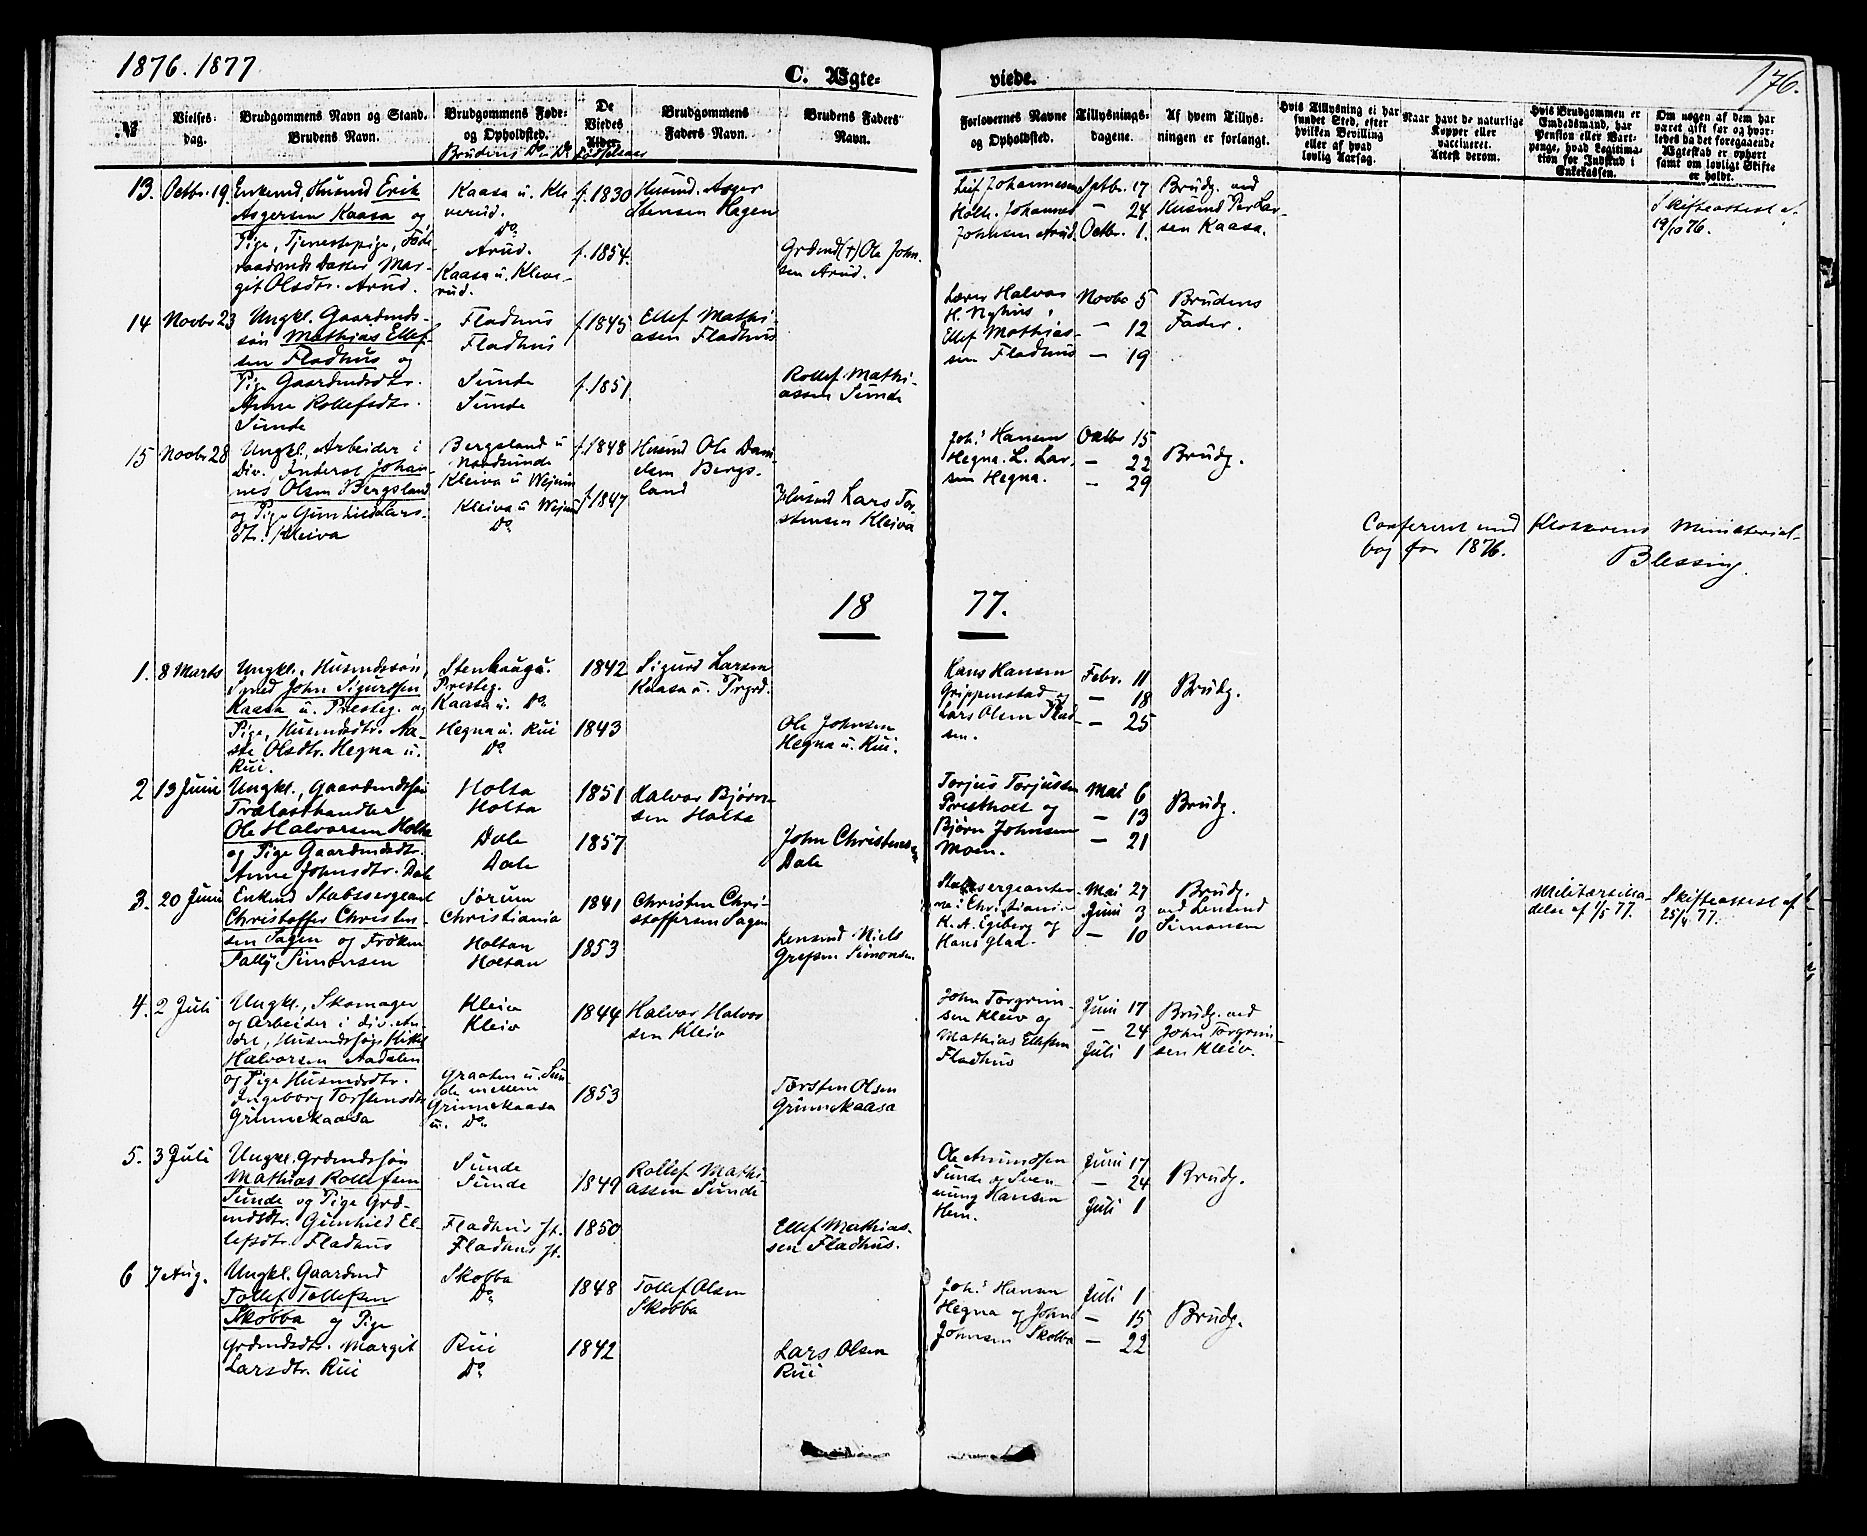 1876. 1877
C. Ægte=
viede.
176.
№
Vielses-
dag.
Brudgommens Navn og Stand.
Brudens Navn.
Brudgommens Føde-
og Opholdsted.
Brudens Do Do
De
Viedes
Alder.
Fødselsaar
Brudgommens
Faders Navn.
Brudens Faders
Navn.
Forlovernes Navne
og Opholdsted.
Tillysnings-
dagene.
Af hvem Tillys-
ningen er forlangt.
Hvis Tillysning ei har
fundet Sted, efter
hvilken Bevilling
eller af hvad
lovlig Aarsag.
Naar havt de naturlige
Kopper eller
vaccineret.
Attest derom.
Hvis Brudgommen er
Embedsmand, har
Pension eller Vart-
penge, hvad Legitima-
tion for Indskud i
Enkekassen.
Om nogen af dem har
været gift før og hvor-
ledes da det foregaaende
Ægteskab er ophørt
samt om lovligt Skifte
er holdt.
13. Octbr. 19.
Enkemd, Husmd Erik
Asgersen Kaasa og
Pige, Tjenestepige, Føde-
raadsmds Datter Mar-
git Olsdtr. Arud.
Kaasa u. Kle
verud.
Do
Arud.
Kaasa u. Kleve-
rud.
f. 1830
f. 1854.
Husmd. Asger
Stensen Hagen
Grdmd (+) Ole John-
sen Arud.
Leif Johannesen
Holte. Johannes
Johnsen Arud.
Septbr. 17
— 24
Octbr. 1.
Brudg. ved
Husmd Per Lar-
sen Kaasa.
Skifteattest af
19/10 76.
14 Novbr 23
Ungkl. Gaardmds-
søn Mathias Ellef-
sen Fladhus og
Pige Gaardmdsdtr.
Anne Rollefsdtr.
Sunde
Fladhus
Fladhus
Sunde
Sunde
f. 1845
f. 1851
Ellef Mathi-
asen Fladhus
Rollef Mathi-
assen Sunde
Lærer Halvor
H. Nyhus,
Ellef Mathias-
sen Fladhus
Novbr 5
— 12
— 19
Brudens
Fader.
15 Novbr 28
Ungkl., Arbeider i
Div. Inderst Johan-
nes Olsen Bergsland
og Pige Gunhild Lars-
dtr. Kleiva
Bergsland u
Nordsunde
Kleiva u Wejum
Kleiva u Wejum
Do
f. 1848
f. 1847
Husmd Ole Dani
elsen Bergs-
land
Husmd Lars Tor-
stensen Kleiva
Joh.s Hansen
Hegna. L. Lar-
sen Hegna.
Octbr 15
— 22
— 29
Brudg.
Confereret med Klokkerens Ministerial-
bog for 1876.
Blessing.
18 77.
1. 8 Marts
Ungkl., Husmdssøn,
Smed John Sigurdsen
Kaasa u. Presteg. og
Pige, Husmdsdtr. Aa-
ste Olsdtr. Hegna u.
Rui.
Stenhaug u.
Presteg.
Kaasa u. Do.
Hegna u. Rui
Do
1842
1843
Sigurd Larsen
Kaasa u. Prgrd.
Ole Johnsen
Hegna u. Rui.
Hans Hansen
Grippenstad og
Lars Olsen Mad-
sen.
Febr. 11
— 18
— 25
Brudg.
2 13 Juni
Ungkl., Gaardmdssøn
Trælasthandler
Ole Halvorsen Holta
og Pige Gaardmdsdtr.
Anne Johnsdtr. Dale
Holta
Holta
Dale
Dale
1851
1857
Halvor Bjørn-
sen Holta
John Christensen
Dale
Torjus Torjussen
Prestholt og
Bjørn Johnsen
Moen.
Mai 6
— 13
— 21
Brudg.
3. 20 Juni
Enkemd Stabssergeant
Christoffer Christen-
sen Sagen og Frøken
Pally Simonsen
Sørum
Christiania
Holtan
Holtan
1841
1853
Christen Chri-
stoffersen Sagen
Lensmd Niels
Grefsen Simonsen
Stabssergeanter-
ne i Christiania
K. A. Egeberg og
Hans Glad.
Mai 27
Juni 3
— 10
Brudg.
ved Lensmd
Simonsen
Militærtilla-
delse af 1/5 77.
Skifteattest af
25/4 77.
4. 2 Juli
Ungkl., Skomager
og Arbeider i div. An-
det, Husmdssøn Kittil
Halvorsen Aadalen
og Pige Husmdsdtr.
Ingeborg Torstensdtr
Grinnekaasa
Kleiv
Kleiv
Graaten u. Sun-
de mellem
Grinnekaasa
u. Do.
1844
1853
Halvor Halvor
sen Kleiv
Torsten Olsen
Grinnekaasa
John Torgrim-
sen Kleiv og
Mathias Ellefsen
Fladhus
Juni 17
— 24
Juli 1
Brudg. ved
John Torgrim-
sen Kleiv.
5. 3 Juli
Ungkl. Grdmdssøn
Mathias Rollefsen
Sunde og Pige Grd-
mdsdtr. Gunhild El-
lefsdtr. Fladhus
Sunde
Sunde
Fladhus Jt.
Fladhus Jt.
1849
1850
Rollef Mathi
assen Sunde
Ellef Mathias-
sen Fladhus.
Ole Amundsen
Sunde og Sven-
nung Hansen
Hem.
Juni 17
— 24
Juli 1
Brudg.
6 7 Aug.
Ungkl. Gaardmd
Tollef Tollefsen
Skobba og Pige
Grdmdsdtr. Margit
Larsdtr. Rui
Skobba
Do
Rui
Do
1848
1842
Tollef Olsen
Skobba
Lars Olsen
Rui
Joh.s Hansen
Hegna og John
Johnsen Skobba
Juli 1
— 15
— 22
Brudg.